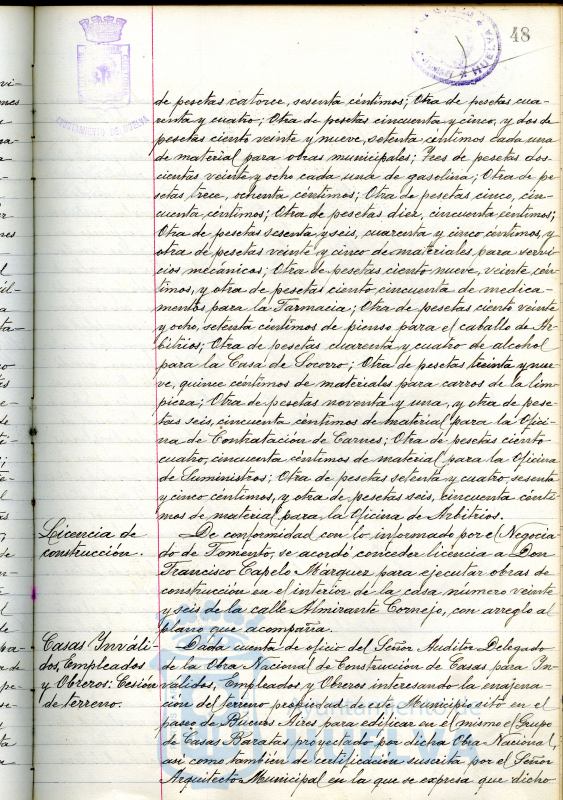 48
AYUNTAMIENTO DE HUELVA
HUELVA
de pesetas catorce, sesenta céntimos; Otra de pesetas cua-
renta y cuatro; Otra de pesetas cincuenta y cinco, y dos de
pesetas ciento veinte y nueve, setenta céntimos cada una
de material para obras municipales; Tres de pesetas dos-
cientas veinte y ocho cada una de gasolina; Otra de pe-
setas trece, ochenta céntimos; Otra de pesetas cinco, cin-
cuenta céntimos; Otra de pesetas diez, cincuenta céntimos;
Otra de pesetas sesenta y seis, cuarenta y cinco céntimos, y
otra de pesetas veinte y cinco de materiales para servi-
cios mecánicos; Otra de pesetas ciento nueve, veinte cén-
timos, y otra de pesetas ciento, cincuenta de medica-
mentos para la Farmacia; Otra de pesetas ciento veinte
y ocho, setenta céntimos de pienso para el caballo de Ar-
bitrios; Otra de pesetas cuarenta y cuatro de alcohol
para la Casa de Socorro; Otra de pesetas treinta y nue-
ve, quince céntimos de materiales para carros de la lim-
pieza; Otra de pesetas noventa y una, y otra de pese-
tas seis, cincuenta céntimos de material para la Ofici-
na de Contratación de Carnes; Otra de pesetas ciento
cuatro, cincuenta céntimos de material para la Oficina
de Suministros; Otra de pesetas setenta y cuatro, sesenta
y cinco céntimos, y otra de pesetas seis, cincuenta cénti-
mos de material para la Oficina de Arbitrios.
Licencia de
construcción.
De conformidad con lo informado por el Negocia-
do de Fomento, se acordó conceder licencia a Don
Francisco Capelo Márquez para ejecutar obras de
construcción en el interior de la casa número veinte
y seis de la calle Almirante Cornejo, con arreglo al
plano que acompaña.
Casas Inváli-
dos, Empleados
y Obreros: Cesión
de terreno.
Dada cuenta de oficio del Señor Auditor Delegado
de la Obra Nacional de Construcción de Casas para In-
válidos, Empleados y Obreros interesando la enajena-
ción del terreno propiedad de este Municipio sito en el
paseo de Buenos Aires para edificar en el mismo el Grupo
de Casas Baratas proyectado por dicha Obra Nacional,
así como también de certificación suscrita por el Señor
Arquitecto Municipal en la que se expresa que dicho
Ayuntamiento de
HUELVA